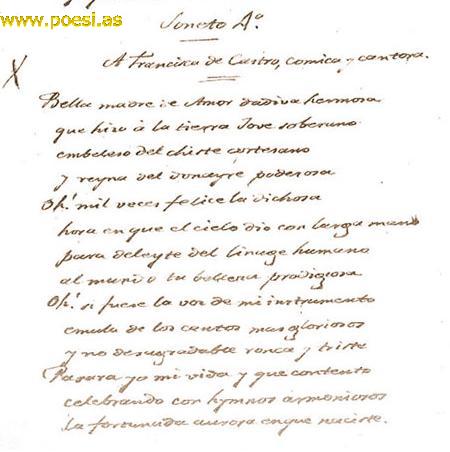 www.poesi.as
Soneto 4º
A Francisca de Castro, comica y cantora.
X
Bella madre de Amor dadiva hermosa
que hizo à la tierra Jove soberano
embeleso del chiste cortesano
y reyna del donayre poderosa
Oh! mil veces felice la dichosa
hora en que el cielo dio con larga mano
para deleyte del linage humano
al mundo tu belleza prodigiosa
Oh! si fuese la voz de mi instrumento
emula de los cantos mas gloriosos
y no desagradable ronca y triste
Pasara yo mi vida y que contento
celebrando con hymnos armoniosos
la fortunida aurora en que naciste.